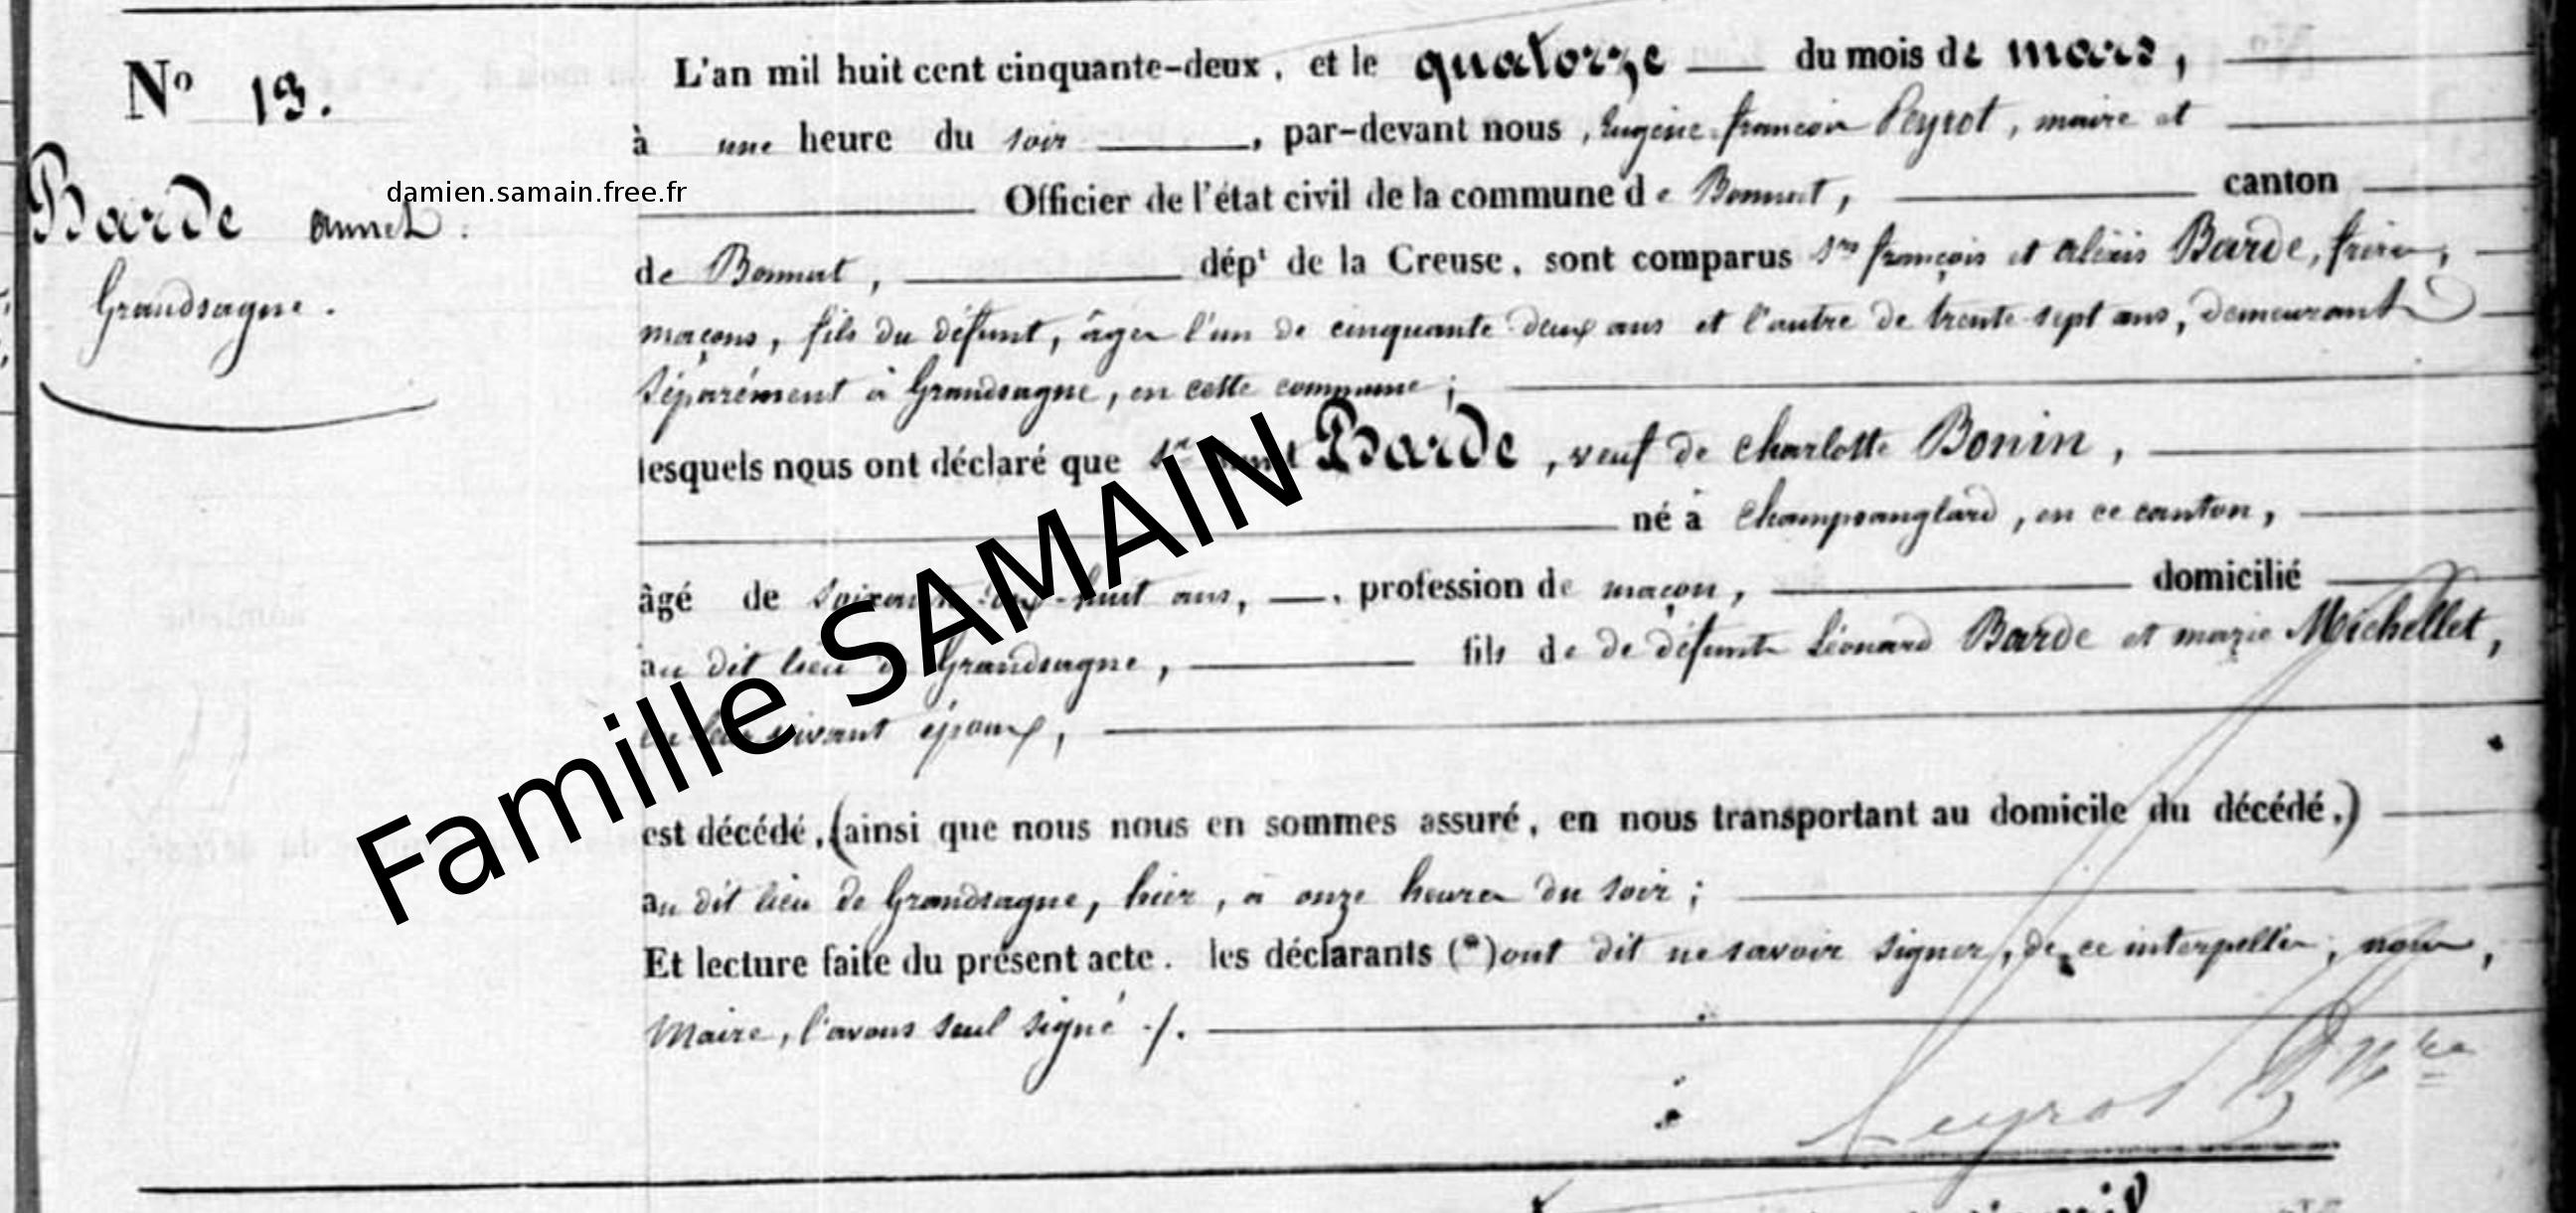 L'an mil huit cent cinquante-deux, et le quatorze du mois de mars,
N° 13.
à une heure du soir, par-devant nous, Eugène françois Peyrot, maire et
damien.samain.free.fr
Officier de l'état civil de la commune de Bonnat, canton
Barde annet.
de Bonnat, dép^t de la Creuse, sont comparus s^rs françois et alexis Barde, frères,
Grandsagne.
maçons, fils du défunt, âgés l'un de cinquante deux ans et l'autre de trente-sept ans, demeurant
séparément à Grandsagne, en cette commune;
lesquels nous ont déclaré que s^r annet Barde, veuf de charlotte Bonin,
né à Champsanglard, en ce canton,
âgé de soixante-dix-huit ans, profession de maçon, domicilié
au dit lieu de Grandsagne, fils de de défunts Léonard Barde et marie Michellet,
en leur vivant époux,
Famille SAMAIN
est décédé, (ainsi que nous nous en sommes assuré, en nous transportant au domicile du décédé,)
au dit lieu de Grandsagne, hier, à onze heures du soir;
Et lecture faite du présent acte. les déclarants (*) ont dit ne savoir signer, de ce interpellés, nous,
Maire, l'avons seul signé ./.
Peyrot